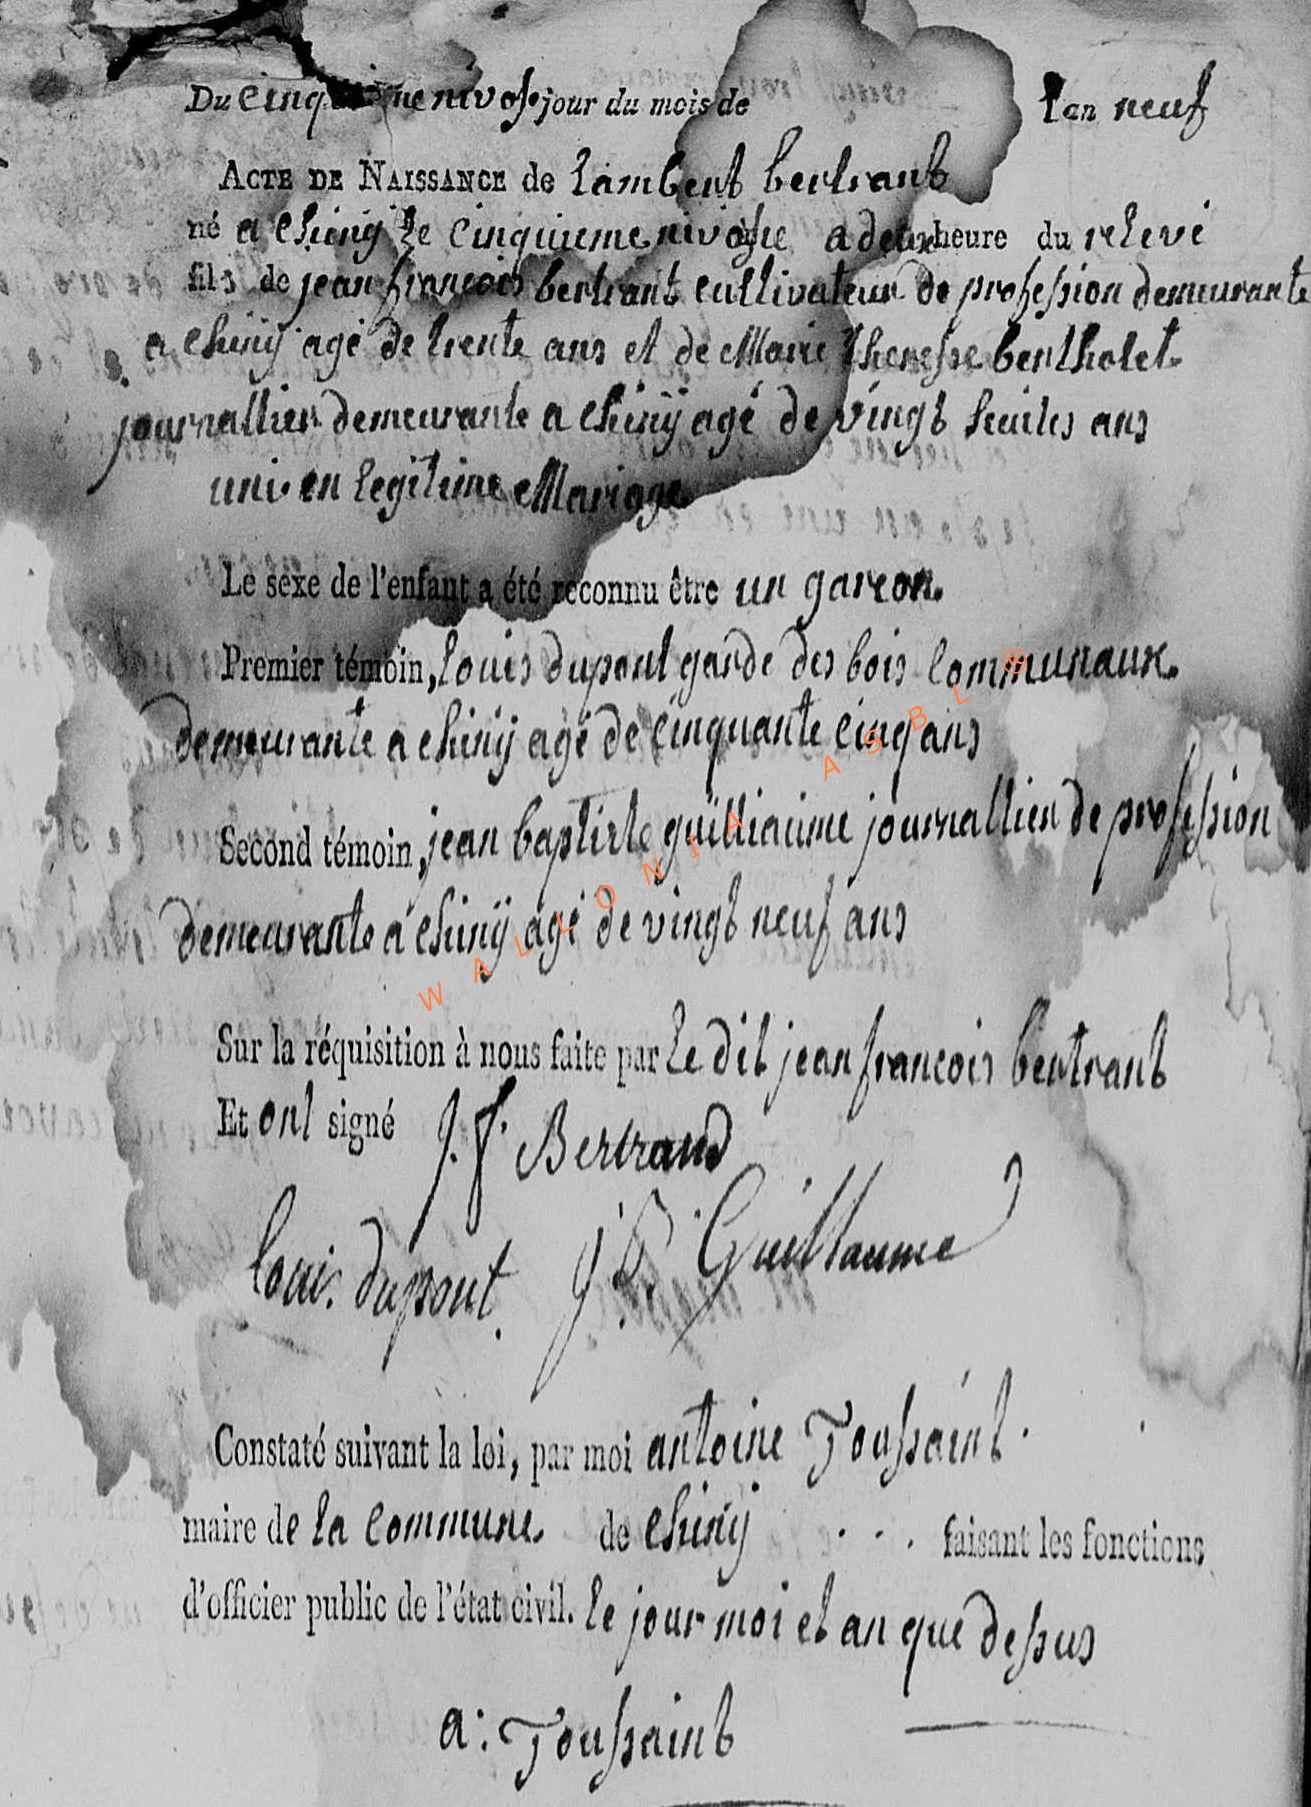 Du cinquieme nivose jour du mois de l'an neuf
ACTE DE NAISSANCE de Lambert bertrant
né a chiny le cinquieme nivose a deux heure du relevé
fils de jean francois bertrant cultivateur de profession demeurante
a chinÿ agé de trente ans et de Marie therese bertholet
journallier demeurante a chinÿ agé de vingt huites ans
uni en legitime Mariage
Le sexe de l'enfant a été reconnu être un garcon.
Premier témoin, louis dupont garde des bois communaux.
demeurante a chinÿ agé de cinquante cinq ans
Second témoin, jean baptiste guilliaume journallier de profession
demeurante a chinÿ agé de vingt neuf ans
Sur la réquisition à nous faite par le dit jean francois bertrant
Et ont signé J. f. Bertrand
Louis dupont. J B. Guillaume
Constaté suivant la loi, par moi antoine Toussaint.
maire de la commune de chinÿ . . . faisant les fonctions
d'officier public de l'état civil. le jour moi et an que dessus
a: Toussaint
WALLONIA ASBL ®